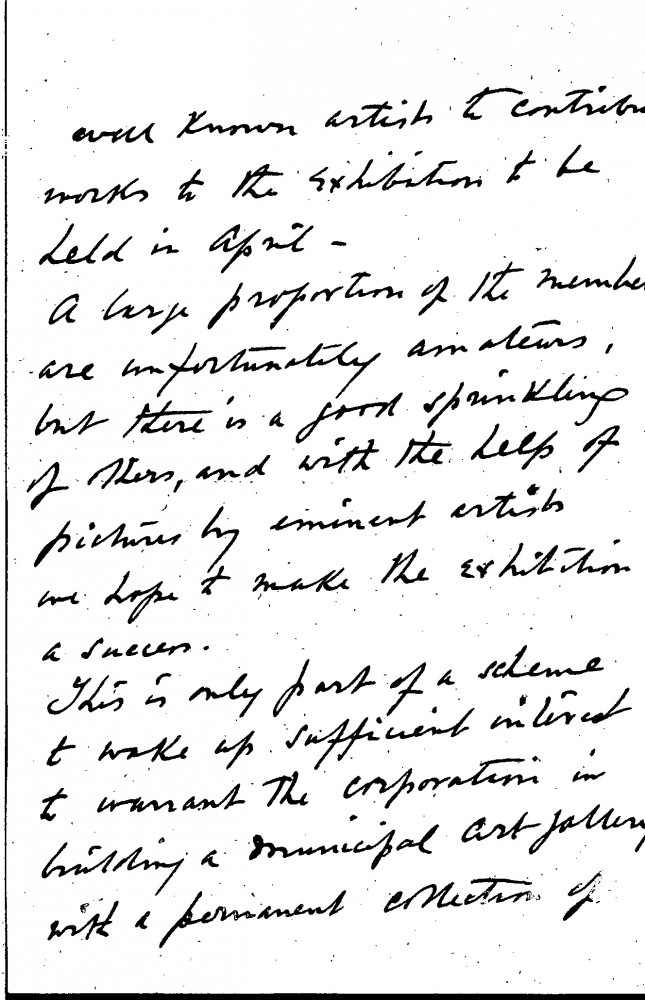 well known artists to contribu
works to the Exhibition to be
held in April -
A large proportion of the membe
are unfortunately amateurs,
but there is a good sprinkling
of others, and with the help of
pictures by eminent artists
we hope to make the Exhibition
a success.
This is only part of a scheme
to wake up sufficient interest
to warrant the corporation in
building a municipal Art gallery
with a permanent collection of